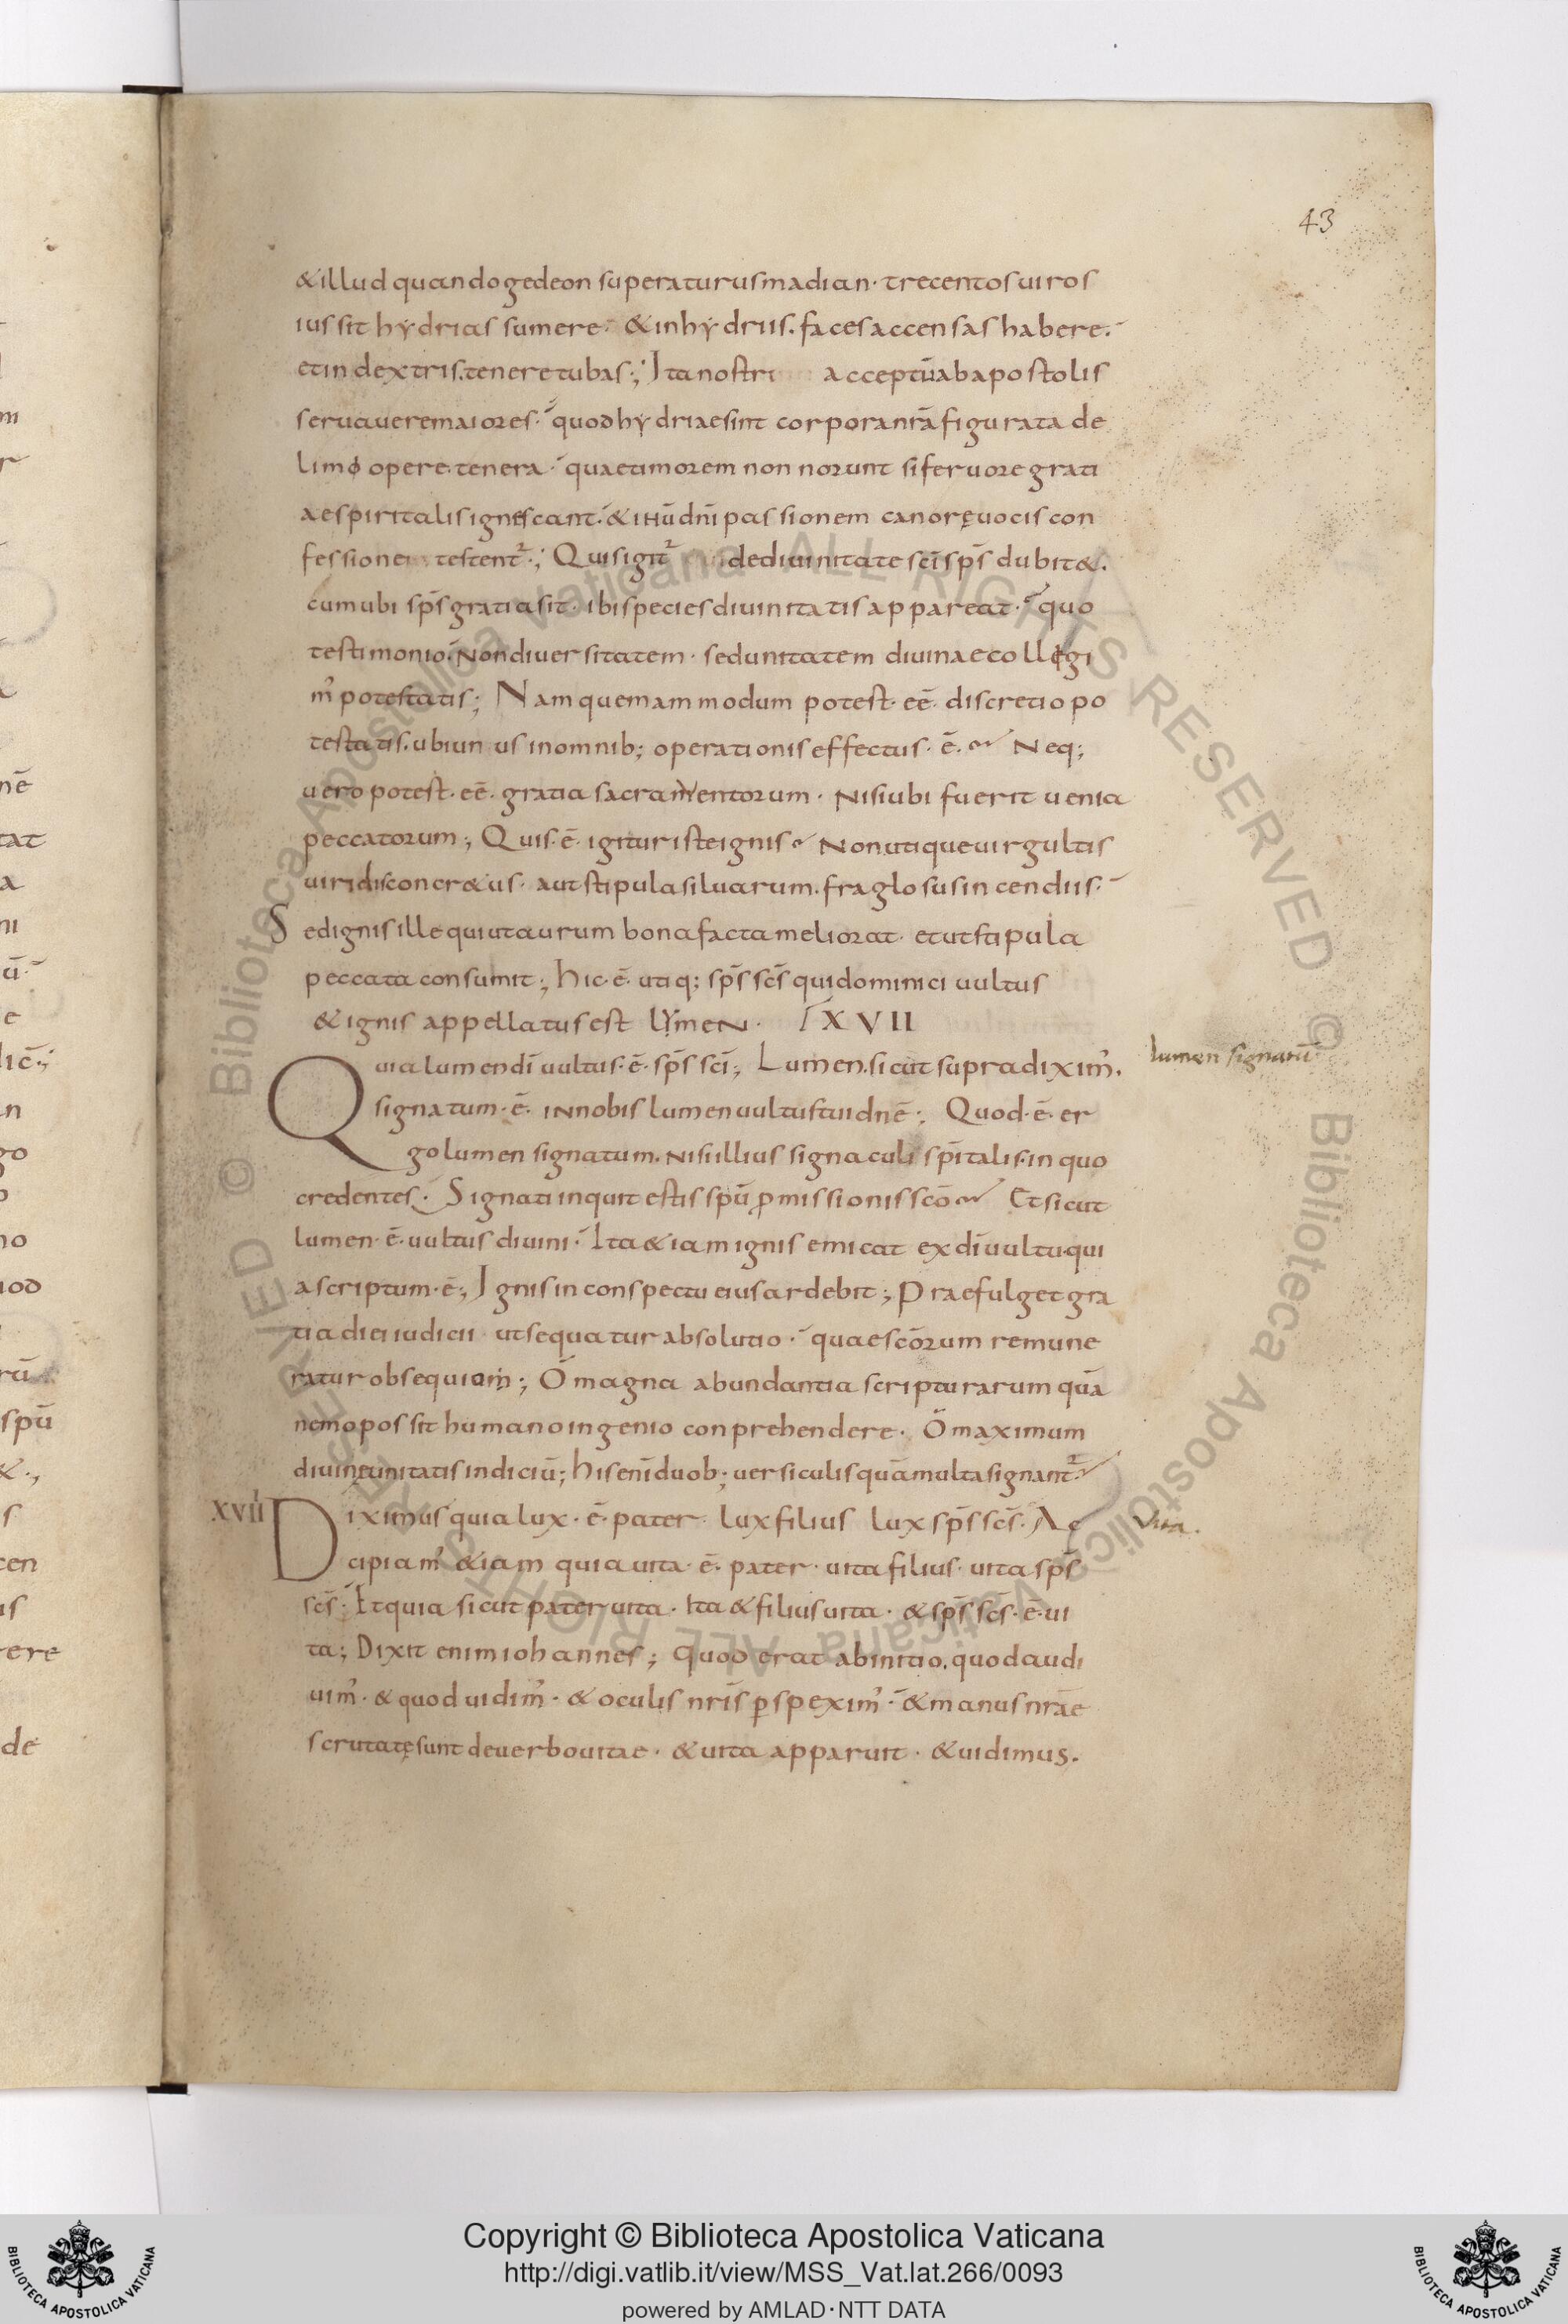 43
& illud quando gedeon superaturus madian · trecentos uiros
iussit hydrias sumere · & in hydriis . faces accensas habere .
et in dextris . tenere tubas ; Ita nostri acceptū ab apostolis
seruauere maiores · quod hydriae sint corpora nr̄a figurata de
limo opere tenera · quae timorem non norunt si feruore grati
ae spiritalis ignescant · & ihū dn̄i passionem canorę uocis con
fessione testent᷑ ; Quis igit᷑ de diuinitate sc̄i sp̄s dubit& .
cum ubi sp̄s gratia sit · ibi species diuinitatis appareat · quo
testimonio . Non diuersitatem · sed unitatem diuinae collegi
m᾽ potestatis ; Nam quemammodum potest · eē · discretio po
testatis . ubi unus in omnib; operationis effectus · ē · Neq;
uero potest · eē · gratia sacramentorum · Nisi ubi fuerit uenia
peccatorum ; Quis · ē · igitur iste ignis Non utique uirgultis
uiridis concr&us · aut stipula siluarum . fraglosus incendiis ·
Sed ignis ille qui ut aurum bona facta meliorat · et ut stipula
peccata consumit ; hic · ē · utiq; sp̄s sc̄s qui dominici uultus
& ignis appellatus est lymeN · XVII
Quia lumen dī uultus · ē · sp̄s sc̄i ; Lumen . sicut supra dixim᾽ .
lumen signatū
signatum · ē · in nobis lumen uultus tui dn̄e ; Quod · ē · er
go lumen signatum . nisi illius signaculi sp̄italis . in quo
credentes · Signati inquit estis spū ꝓmissionis sc̄o Et sicut
lumen · ē · uultus diuini · Ita & iam ignis emicat ex dī uultu · qui
a scriptum · ē ; Ignis in conspectu eius ardebit ; Praefulget gra
tia diei iudicii ut sequatur absolutio · quae sc̄orum remune
ratur obsequiam ; O magna abundantia scripturarum quā
nemo possit humano ingenio conprehendere · O maximum
diuinę unitatis indiciū ; his enī duob; uersiculis quā multa signant᷑
XVII Diximus quia lux · ē · pater lux filius lux sp̄s sc̄s · Ac
Vita .
cipiam᾽ & iam quia uita · ē · pater · uita filius · uita sp̄s
sc̄s · Et quia sicut pater uita · Ita & filius uita · & sp̄s sc̄s · ē · ui
ta ; Dixit enim iohannes ; Quod erat ab initio . quod audi
uim᾽ · & quod uidim᾽ · & oculis nr̄is ꝑspexim᾽ · & manus nr̄ae
scrutatę sunt de uerbo uitae · & uita apparuit · & uidimus .
Copyright © Biblioteca Apostolica Vaticana
http://digi.vatlib.it/view/MSS_Vat.lat.266/0093
powered by AMLAD · NTT DATA